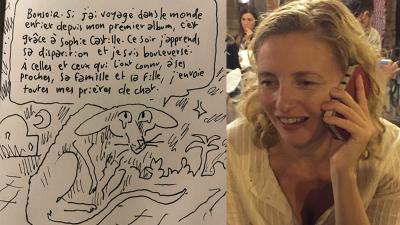 Bonsoir. Si j'ai voyagé dans le monde
entier depuis mon premier album, c'est
grâce à Sophie Castille. Ce soir j'apprends
sa disparition et je suis bouleversé.
À celles et ceux qui l'ont connu, à ses
proches, sa famille et sa fille, j'envoie
toutes mes prières de chat.